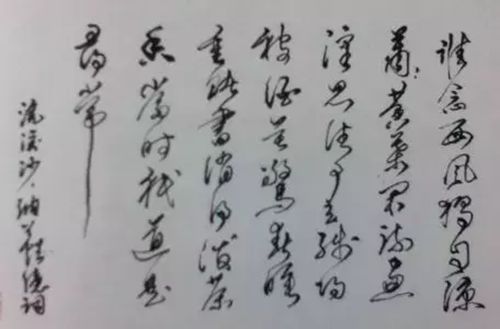 谁念西风独自凉
萧萧黄葉闭疏窗
沉思往事立残阳
被酒莫惊春睡
重赌书消得泼茶
香当时只道是
寻常
浣溪沙·纳兰性德词